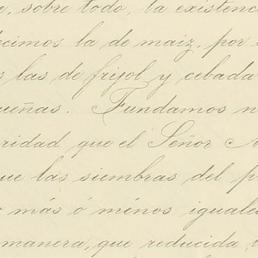 , sobre todo, la existenc
cimos la de maiz, por s
s las de frijol y cebada
ueñas. Fundamos n
ridad, que el Señor
ue las siembras del p
más ó ménos iguale
manera, que reducida